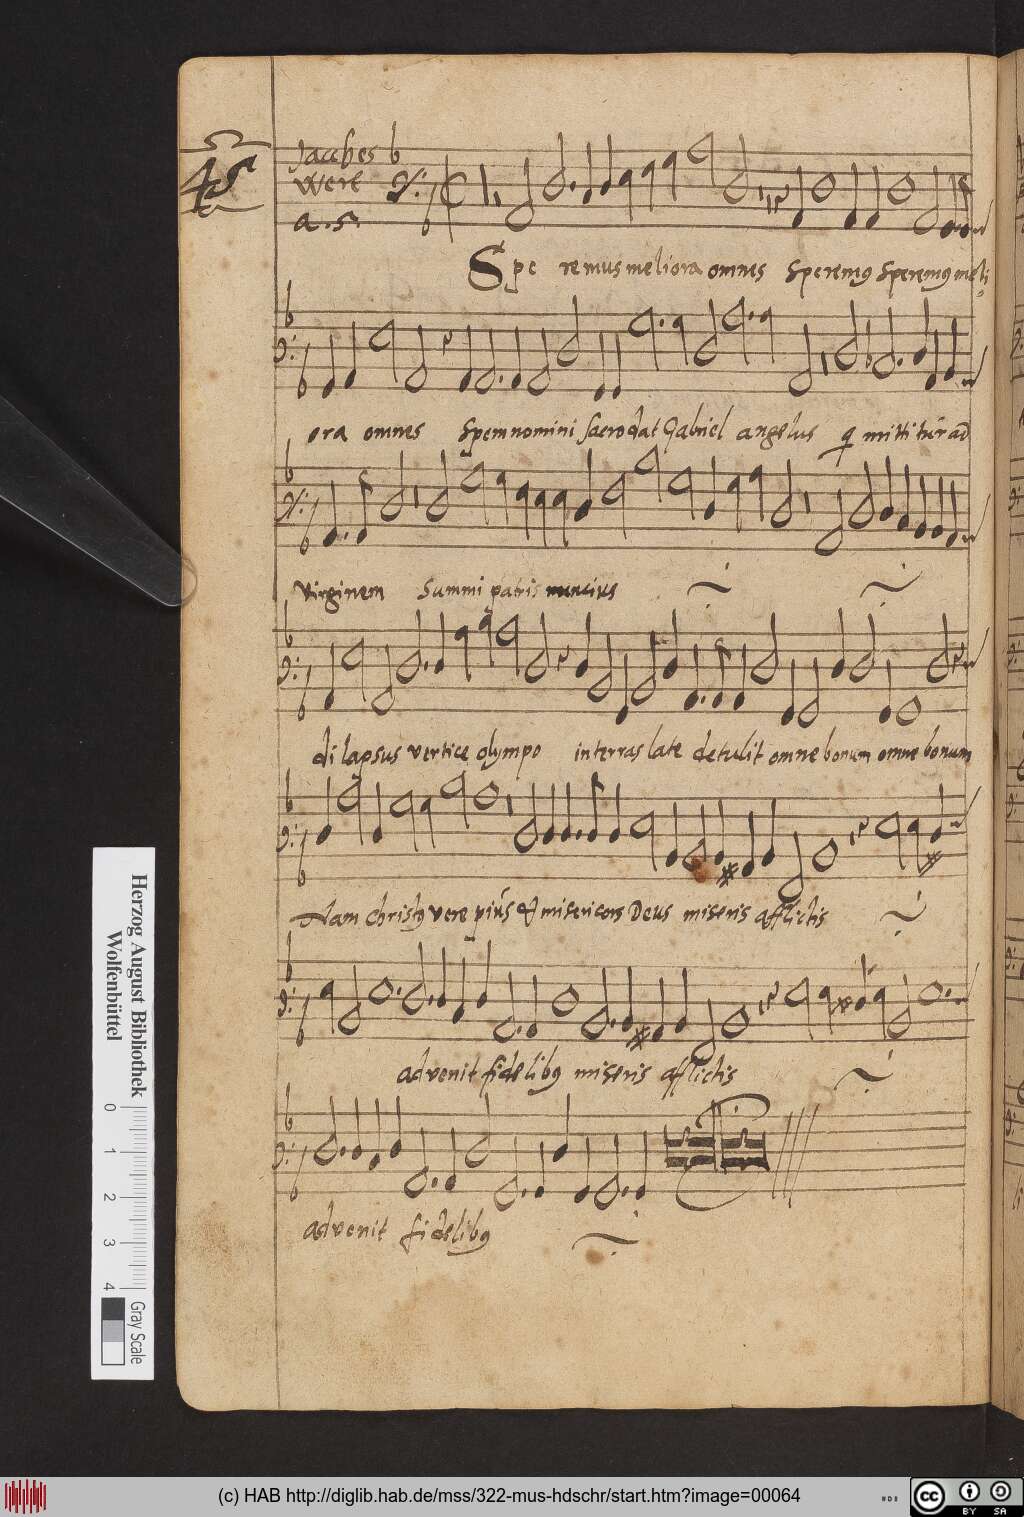 45
Jacches
Were
a. 5.
Spe remus meliora omnes Speremꝰ Speremꝰ meli
ora omnes Spem nomini sacro dat Gabriel angelus q mittitur ad
virginem Summi patris nuncius
di lapsus vertice olympo in terras late detulit omne bonum omne bonum
Nam Christꝰ vere pius & misericors Deus miseris afflictis
advenit fidelibꝰ miseris afflictis
advenit fidelibꝰ
Herzog August Bibliothek
Wolfenbüttel
0 1 2 3 4
Gray Scale
(c) HAB http://diglib.hab.de/mss/322-mus-hdschr/start.htm?image=00064
cc BY SA